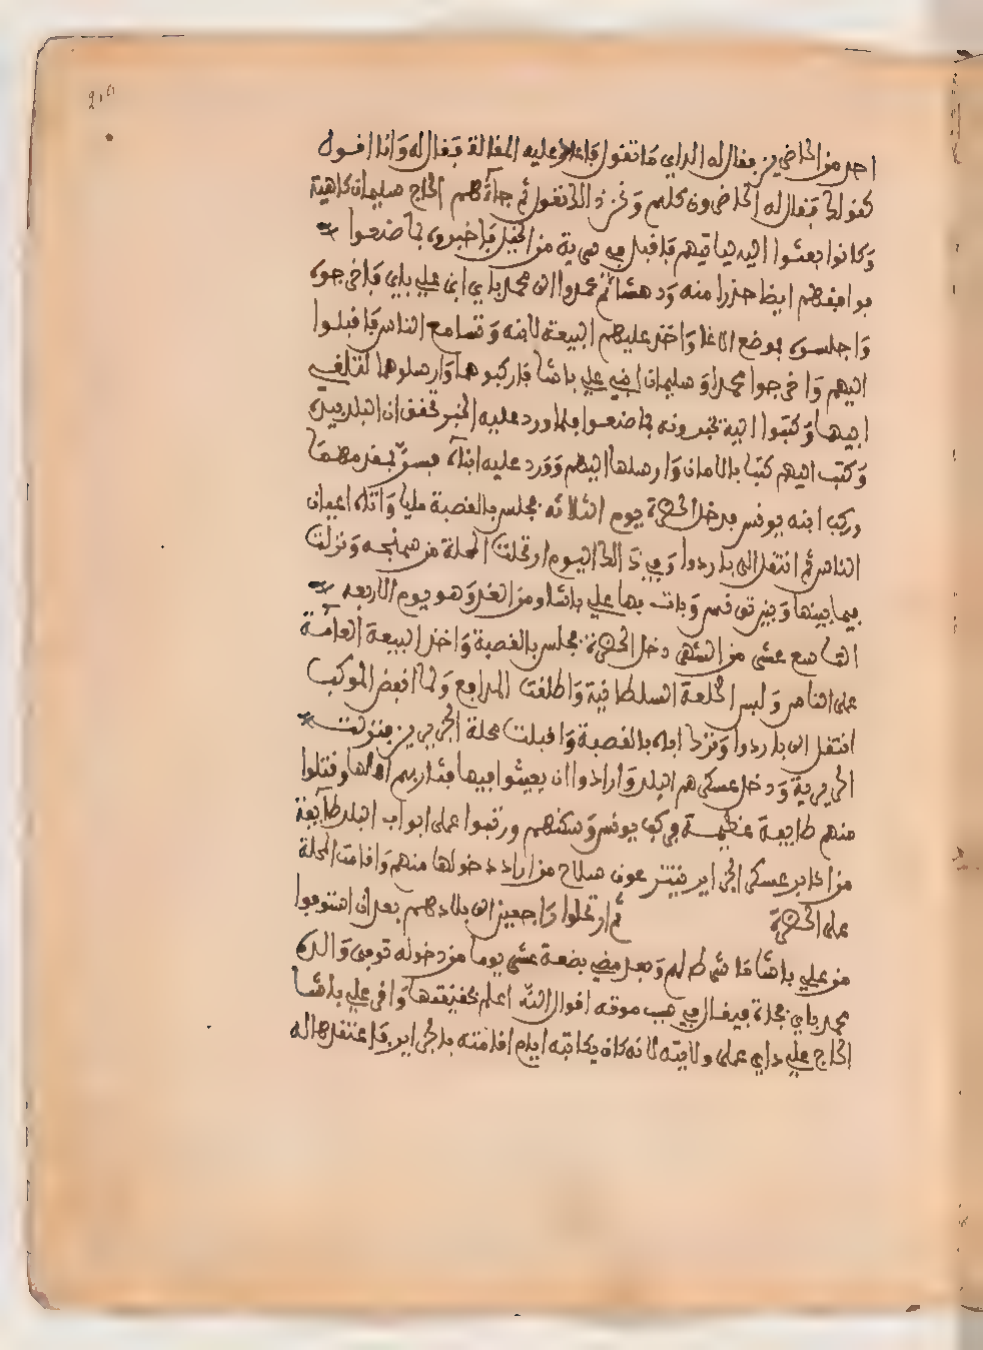 احد من الحاضرين فقال له الداي ما تقول فاعاد عليه المقالة فقال له وانا اقول
كقولك فقال له الحاضرون كلهم ونحن كذالك نقول ثم جاءهم الحاج سليمان كاهية
وكانوا بعثوا اليه لياتيهم فاقبل في سرية من الخيل فاخبروه بما صنعوا
فوافقهم ايضا حذرا منه ودهشا ثم عمدوا الى محمد باي ابن علي باي فاخرجوه
واجلسوه بوضع الاغا واخذ عليهم البيعة لابنه وتسامع الناس فاقبلوا
اليهم واخرجوا محمدا وسليمان ابني علي باشا فاركبوهما وارسلوهما لتلقي
ابيهما وكتبوا اليه يخبرونه بما صنعوا فلما ورد عليه الخبر تحقق ان البلد بيده
وكتب اليهم كتبا بالامان وارسلها اليهم وورد عليه ابناه فسر بمقدمهما
وركب ابنه يونس فدخل الحضرة يوم الثلاثه فجلس بالقصبة مليا واتاه اعيان
الناس ثم انتقل الى باردوا وفي ذالك اليوم ارتحلت المحلة من سمنجه ونزلت
فيما بينها وبين تونس وبات بها علي باشا ومن الغد وهو يوم الاربعه
التاسع عشر من الشهر دخل الحضرة فجلس بالقصبة واخذ البيعة العامة
على الناس ولبس الخلعة السلطانية واطلقت المدافع ولما انفض الموكب
انتقل الى باردوا وترك اباه بالقصبة واقبلت محلة الجزيريين فنزلت
الحريرية ودخل عسكرهم البلد وارادوا ان يعيثوا فيها فثار بهم اهلها وقتلوا
منهم طايفة عظيمة فركب يونس وسكنهم ورتبوا على ابواب البلد طايفة
من اكابر عسكر الجزاير ينتزعون سلاح من اراد دخولها منهم واقامت المحلة
على الحضرة ثم ارتحلوا راجعين الى بلادهم بعد ان استوفوا
من علي باشا ما شرط لهم وبعد مضي بضعة عشر يوما من دخوله توفي والده
محمد باي فجاة فيقال في سبب موته اقوال الله اعلم بحقيقتها واقر علي باشا
الحاج علي داي على ولايته لانه كان يكاتبه ايام اقامته بالجزاير فاعتقدها له